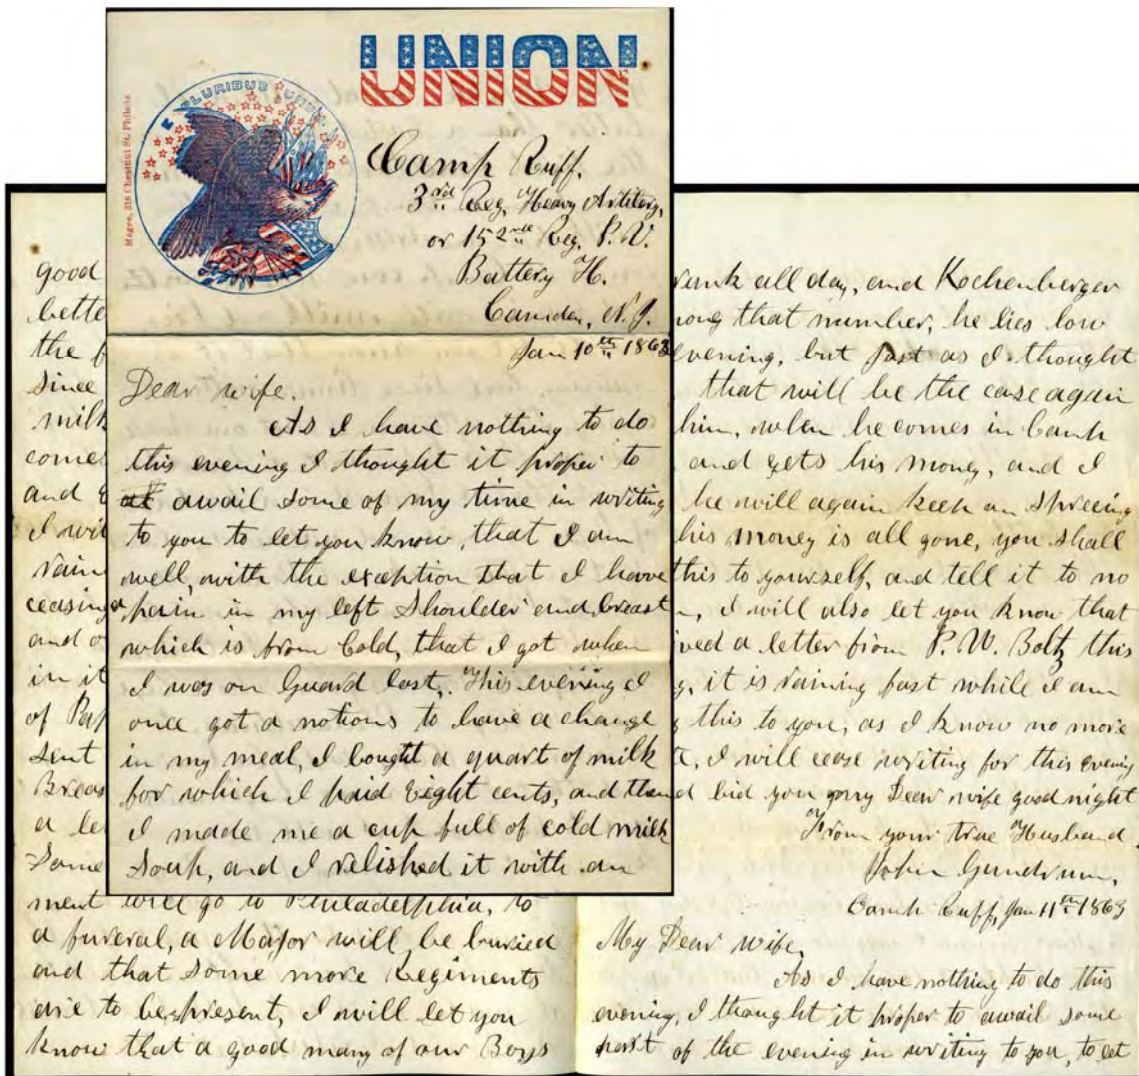 UNION
E PLURIBUS UNUM.
Magee, 316 Chestnut St. Philada
Camp Ruff.
3rd Reg, Heavy Artilery,
or 152nd Reg. P. V.
Battery H.
Camden, N. J.
Jan 10th 1863
Dear wife.
As I have nothing to do
this evening I thought it proper to
awail some of my time in writing
to you to let you know, that I am
well, with the exception that I have
a pain in my left Shoulder and, breast
which is from Cold, that I got when
I was on Guard last,. This evening I
once got a notions to have a change
in my meal, I bought a quart of milk
for which I paid Eight cents, and then
I made me a cup full of cold milk
Soup, and I relished it with an
good
bette
the f
since
milk
comes
and
I wil
rain
ceasing
and o
in it
of Pap
sent
Breas
a le
Some
ment will go to Philadelphia, to
a funeral, a Major will be buried
and that some more Regiments
are to be present, I will let you
know that a good many of our Boys
runk all day, and Kochenberger
mong that number, he lies low
evening, but just as I thought
that will be the case again
him, when he comes in Camp
and gets his money, and I
he will again keep on spreeing
his money is all gone, you shall
this to yourself, and tell it to no
I will also let you know that
ived a letter from P. W. Boltz this
g, it is raining fast while I am
g this to you, as I know no more
I will cease writing for this evening
d bid you my Dear wife good night
From your true Husband
John Gundrum,
Camp Ruff, Jan 11th 1863
My Dear wife,
As I have nothing to do this
evening, I thought it proper to awail some
part of the evening in writing to you, to let